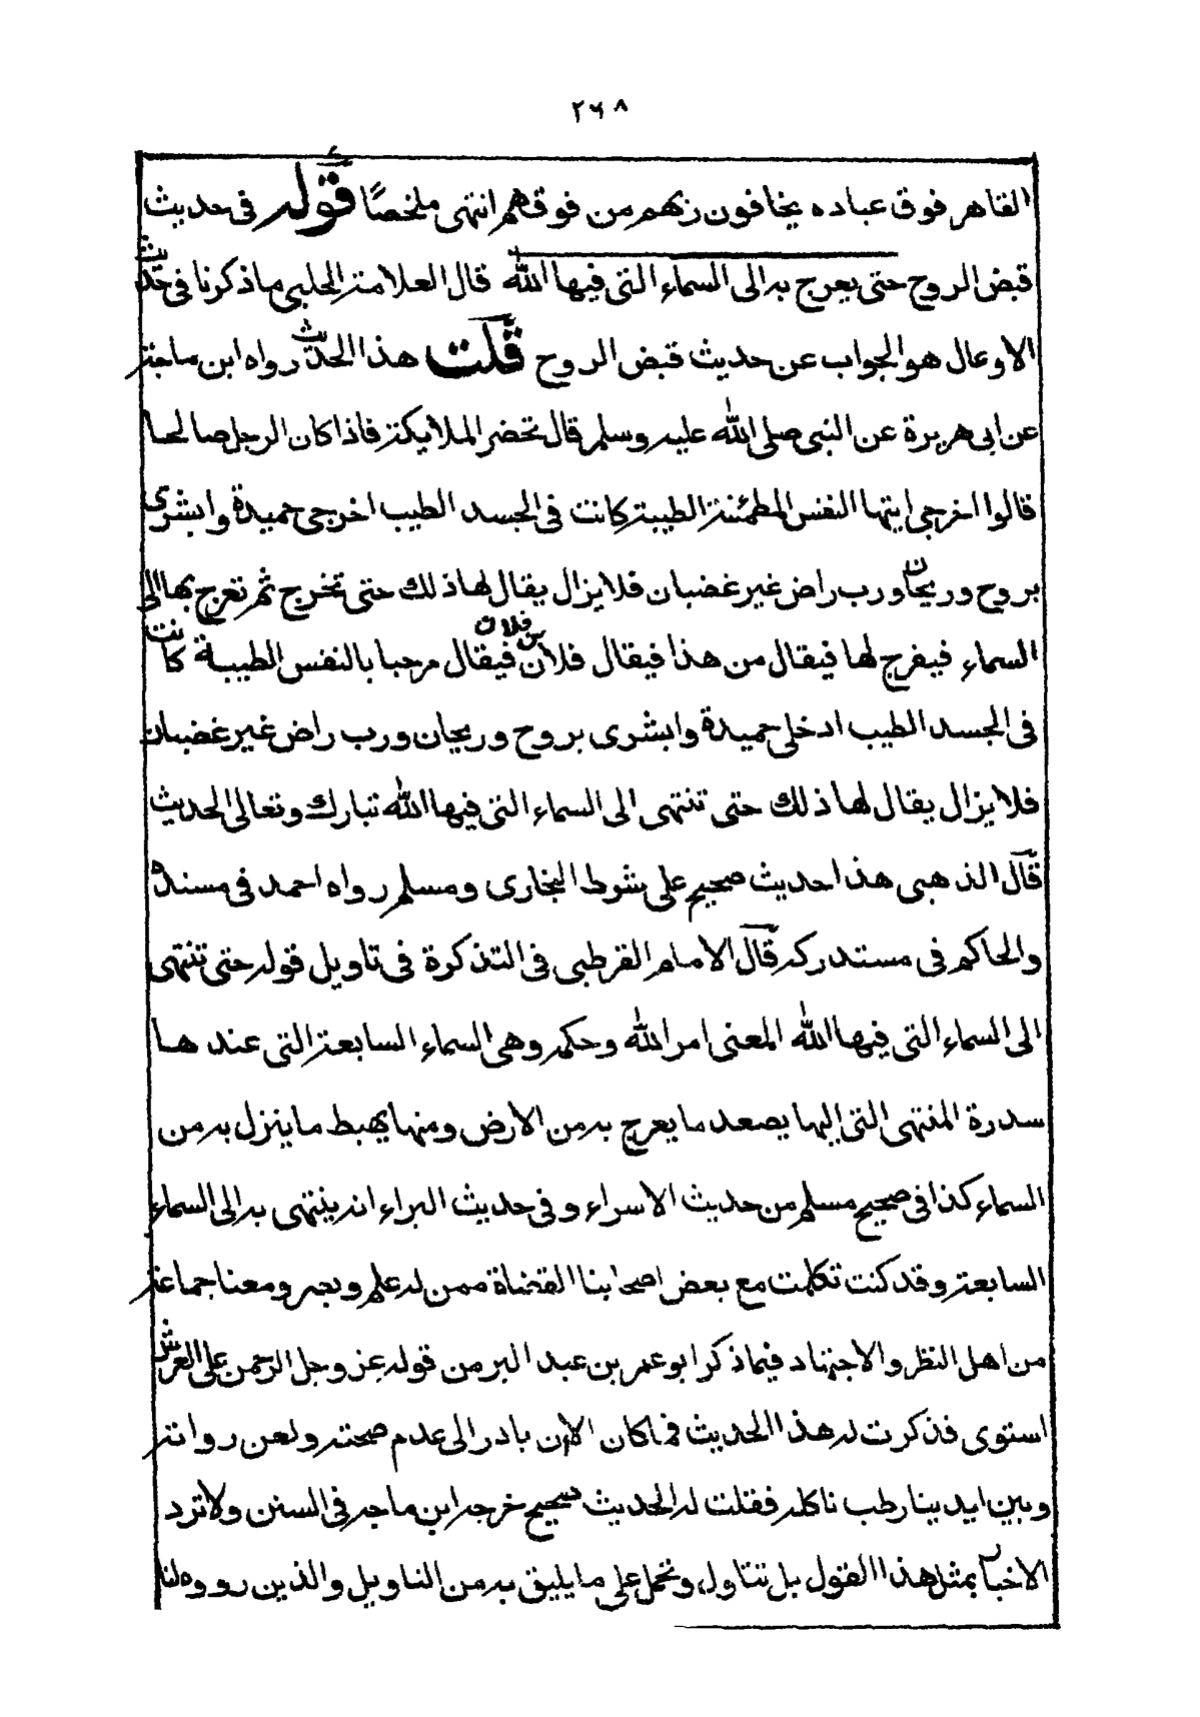 ٢٦٨
القاهر فوق عباده يخافون ربهم من فوقهم انتهى ملخصًا قوله فى حديث
قبض الروح حتى يعرج به الى السماء التى فيها الله قال العلامة الحلبى ما ذكرنا فى حديث
الاوعال هو الجواب عن حديث قبض الروح قلت هذا الحديث رواه ابن ماجة
عن ابى هريرة عن النبى صلى الله عليه وسلم قال تحضر الملايكة فاذا كان الرجل صالحا
قالوا اخرجى ايتها النفس المطمئنة الطيبة كانت فى الجسد الطيب اخرجى حميدة وابشرى
بروح وريحان ورب راض غير غضبان فلا يزال يقال لها ذلك حتى تخرج ثم تعرج بها الى
السماء فيفرج لها فيقال من هذا فيقال فلان بن فلان فيقال مرحبا بالنفس الطيبة كانت
فى الجسد الطيب ادخلى حميدة وابشرى بروح وريحان ورب راض غير غضبان
فلا يزال يقال لها ذلك حتى تنتهى الى السماء التى فيها الله تبارك وتعالى الحديث
قال الذهبى هذا حديث صحيح على شرط البخارى ومسلم رواه احمد فى مسنده
والحاكم فى مستدركه قال الامام القرطبى فى التذكرة فى تاويل قوله حتى تنتهى
الى السماء التى فيها الله المعنى امر الله وحكمه وهى السماء السابعة التى عندها
سدرة المنتهى التى اليها يصعد ما يعرج به من الارض ومنها يهبط ما ينزل به من
السماء كذا فى صحيح مسلم من حديث الاسراء وفى حديث البراء انه ينتهى به الى السماء
السابعة وقد كنت تكلمت مع بعض اصحابنا القضاة ممن له علم وبصر ومعنا جماعة
من اهل النظر والاجتهاد فيما ذكر ابو عمر بن عبد البر من قوله عز وجل الرحمن على العرش
استوى فذكرت له هذا الحديث فما كان الا ان بادر الى عدم صحته ولعن رواته
وبين ايدينا رطب ناكله فقلت له الحديث صحيح خرجه ابن ماجه فى السنن ولا ترد
الاخبار بمثل هذا القول بل تتاول وتحمل على ما يليق به من التاويل والذين رووه لنا